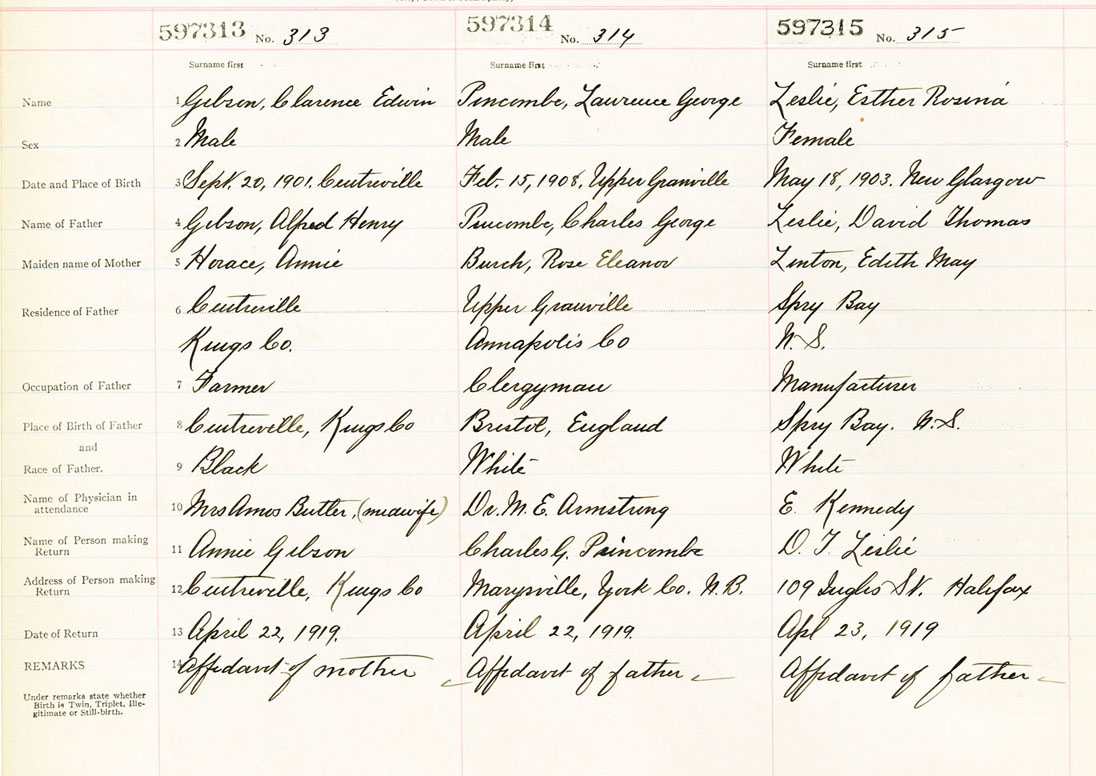 597313 No. 313 597314 No. 314 597315 No. 315
Surname first Surname first Surname first
Name 1 Gibson, Clarence Edwin Pincombe, Lawrence George Leslie, Esther Rosina
Sex 2 Male Male Female
Date and Place of Birth 3 Sept. 20, 1901, Centreville Feb. 15, 1908, Upper Granville May 18, 1903. New Glasgow
Name of Father 4 Gibson, Alfred Henry Pincombe, Charles George Leslie, David Thomas
Maiden name of Mother 5 Horace, Annie Burch, Rose Eleanor Linton, Edith May
Residence of Father 6 Centreville Upper Granville Spry Bay
Kings Co. Annapolis Co N.S.
Occupation of Father 7 Farmer Clergyman Manufacturer
Place of Birth of Father 8 Centreville, Kings Co Bristol, England Spry Bay. N.S.
and
Race of Father. 9 Black White White
Name of Physician in
attendance 10 Mrs Amos Butler, (midwife) Dr. M. E. Armstrong E. Kennedy
Name of Person making
Return 11 Annie Gibson Charles G. Pincombe D. T. Leslie
Address of Person making
Return 12 Centreville, Kings Co Marysville, York Co. N.B. 109 Inglis St. Halifax
Date of Return 13 April 22, 1919. April 22, 1919. Apl 23, 1919
REMARKS 14 Affidavit of mother Affidavit of father Affidavit of father
Under remarks state whether
Birth is Twin, Triplet, Ille-
gitimate or Still-birth.